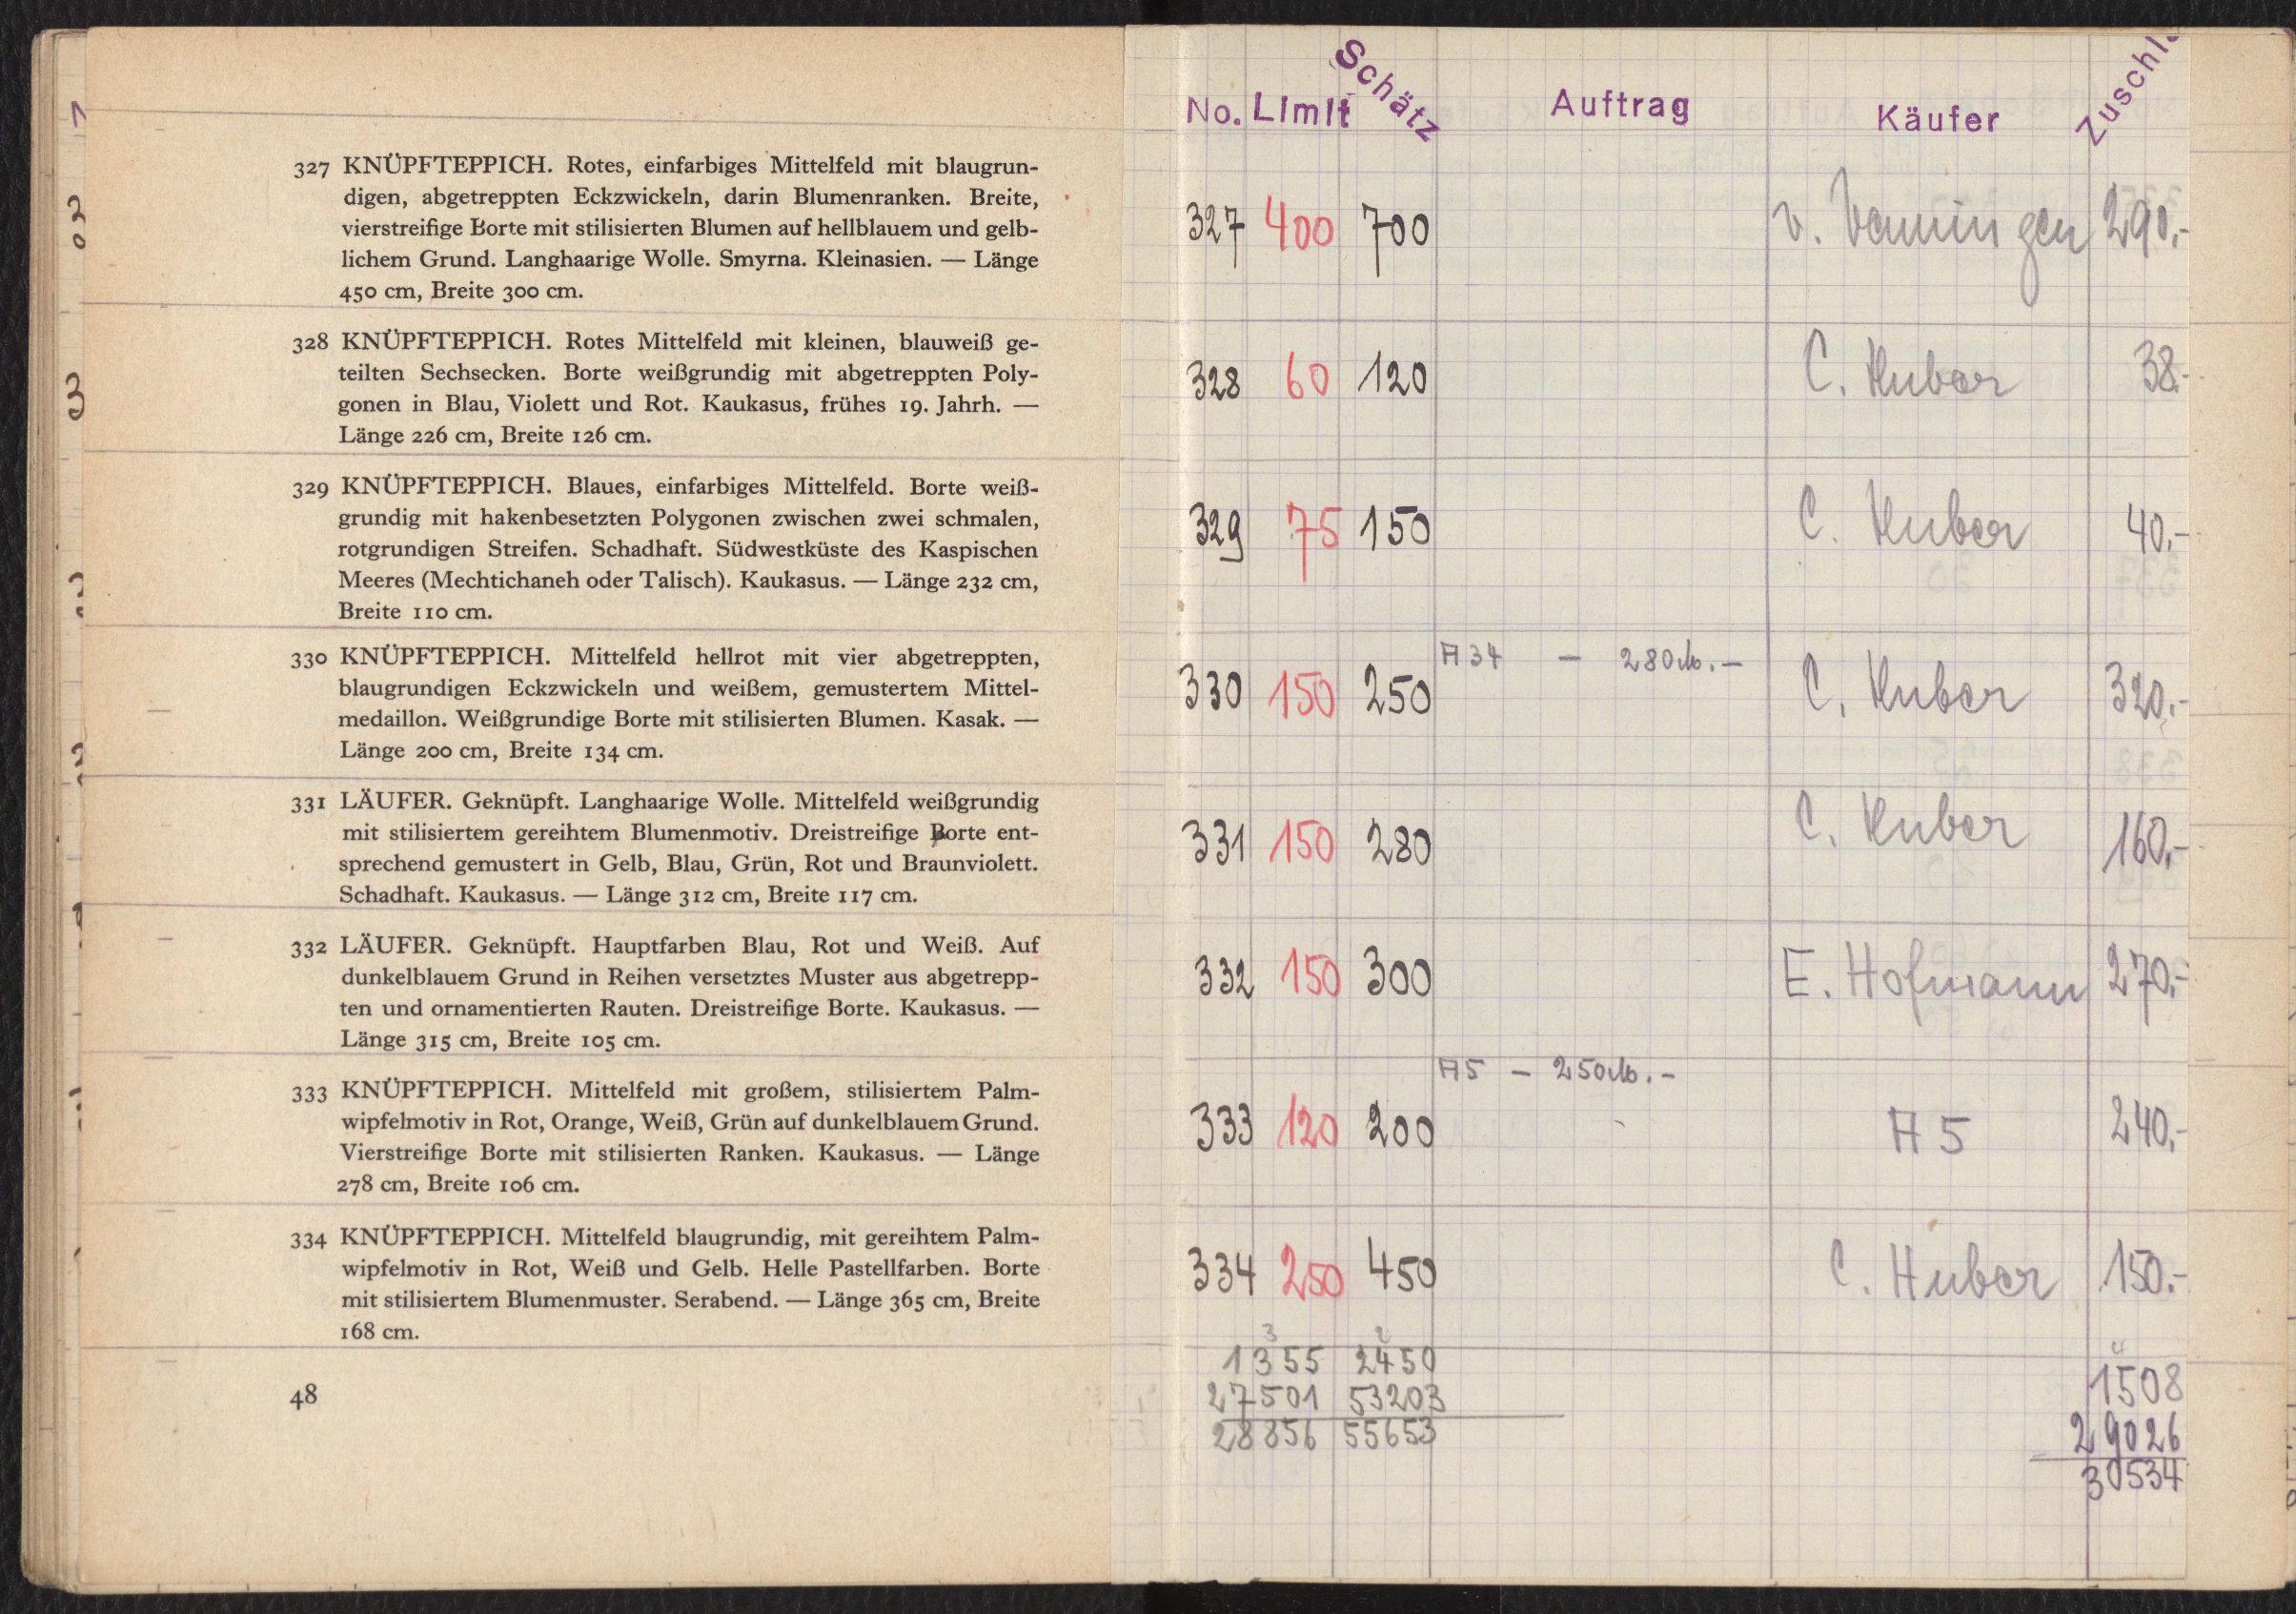 327 KNÜPFTEPPICH. Rotes, einfarbiges Mittelfeld mit blaugrun-
digen, abgetreppten Eckzwickeln, darin Blumenranken. Breite,
vierstreifige Borte mit stilisierten Blumen auf hellblauem und gelb-
lichem Grund. Langhaarige Wolle. Smyrna. Kleinasien. — Länge
450 cm, Breite 300 cm.
328 KNÜPFTEPPICH. Rotes Mittelfeld mit kleinen, blauweiß ge-
teilten Sechsecken. Borte weißgrundig mit abgetreppten Poly-
gonen in Blau, Violett und Rot. Kaukasus, frühes 19. Jahrh. —
Länge 226 cm, Breite 126 cm.
329 KNÜPFTEPPICH. Blaues, einfarbiges Mittelfeld. Borte weiß-
grundig mit hakenbesetzten Polygonen zwischen zwei schmalen,
rotgrundigen Streifen. Schadhaft. Südwestküste des Kaspischen
Meeres (Mechtichaneh oder Talisch). Kaukasus. — Länge 232 cm,
Breite 110 cm.
330 KNÜPFTEPPICH. Mittelfeld hellrot mit vier abgetreppten,
blaugrundigen Eckzwickeln und weißem, gemustertem Mittel-
medaillon. Weißgrundige Borte mit stilisierten Blumen. Kasak. —
Länge 200 cm, Breite 134 cm.
331 LÄUFER. Geknüpft. Langhaarige Wolle. Mittelfeld weißgrundig
mit stilisiertem gereihtem Blumenmotiv. Dreistreifige Borte ent-
sprechend gemustert in Gelb, Blau, Grün, Rot und Braunviolett.
Schadhaft. Kaukasus. — Länge 312 cm, Breite 117 cm.
332 LÄUFER. Geknüpft. Hauptfarben Blau, Rot und Weiß. Auf
dunkelblauem Grund in Reihen versetztes Muster aus abgetrepp-
ten und ornamentierten Rauten. Dreistreifige Borte. Kaukasus. —
Länge 315 cm, Breite 105 cm.
333 KNÜPFTEPPICH. Mittelfeld mit großem, stilisiertem Palm-
wipfelmotiv in Rot, Orange, Weiß, Grün auf dunkelblauem Grund.
Vierstreifige Borte mit stilisierten Ranken. Kaukasus. — Länge
278 cm, Breite 106 cm.
334 KNÜPFTEPPICH. Mittelfeld blaugrundig, mit gereihtem Palm-
wipfelmotiv in Rot, Weiß und Gelb. Helle Pastellfarben. Borte
mit stilisiertem Blumenmuster. Serabend. — Länge 365 cm, Breite
168 cm.
48
No. Limit Schätz Auftrag Käufer Zuschl
327 400 700 v. 290.-
328 60 120 C. Huber 38.-
329 75 150 C. Huber 40.-
A 34 — 280 M. —
330 150 250 C. Huber 320.-
331 150 280 C. Huber 160.-
332 150 300 E. Hofmann 270.-
A5 — 250 M. —
333 120 200 A 5 240.-
334 250 450 C. Huber 150.-
1355 2450 1508
27501 53203 29026
28856 55653 30534